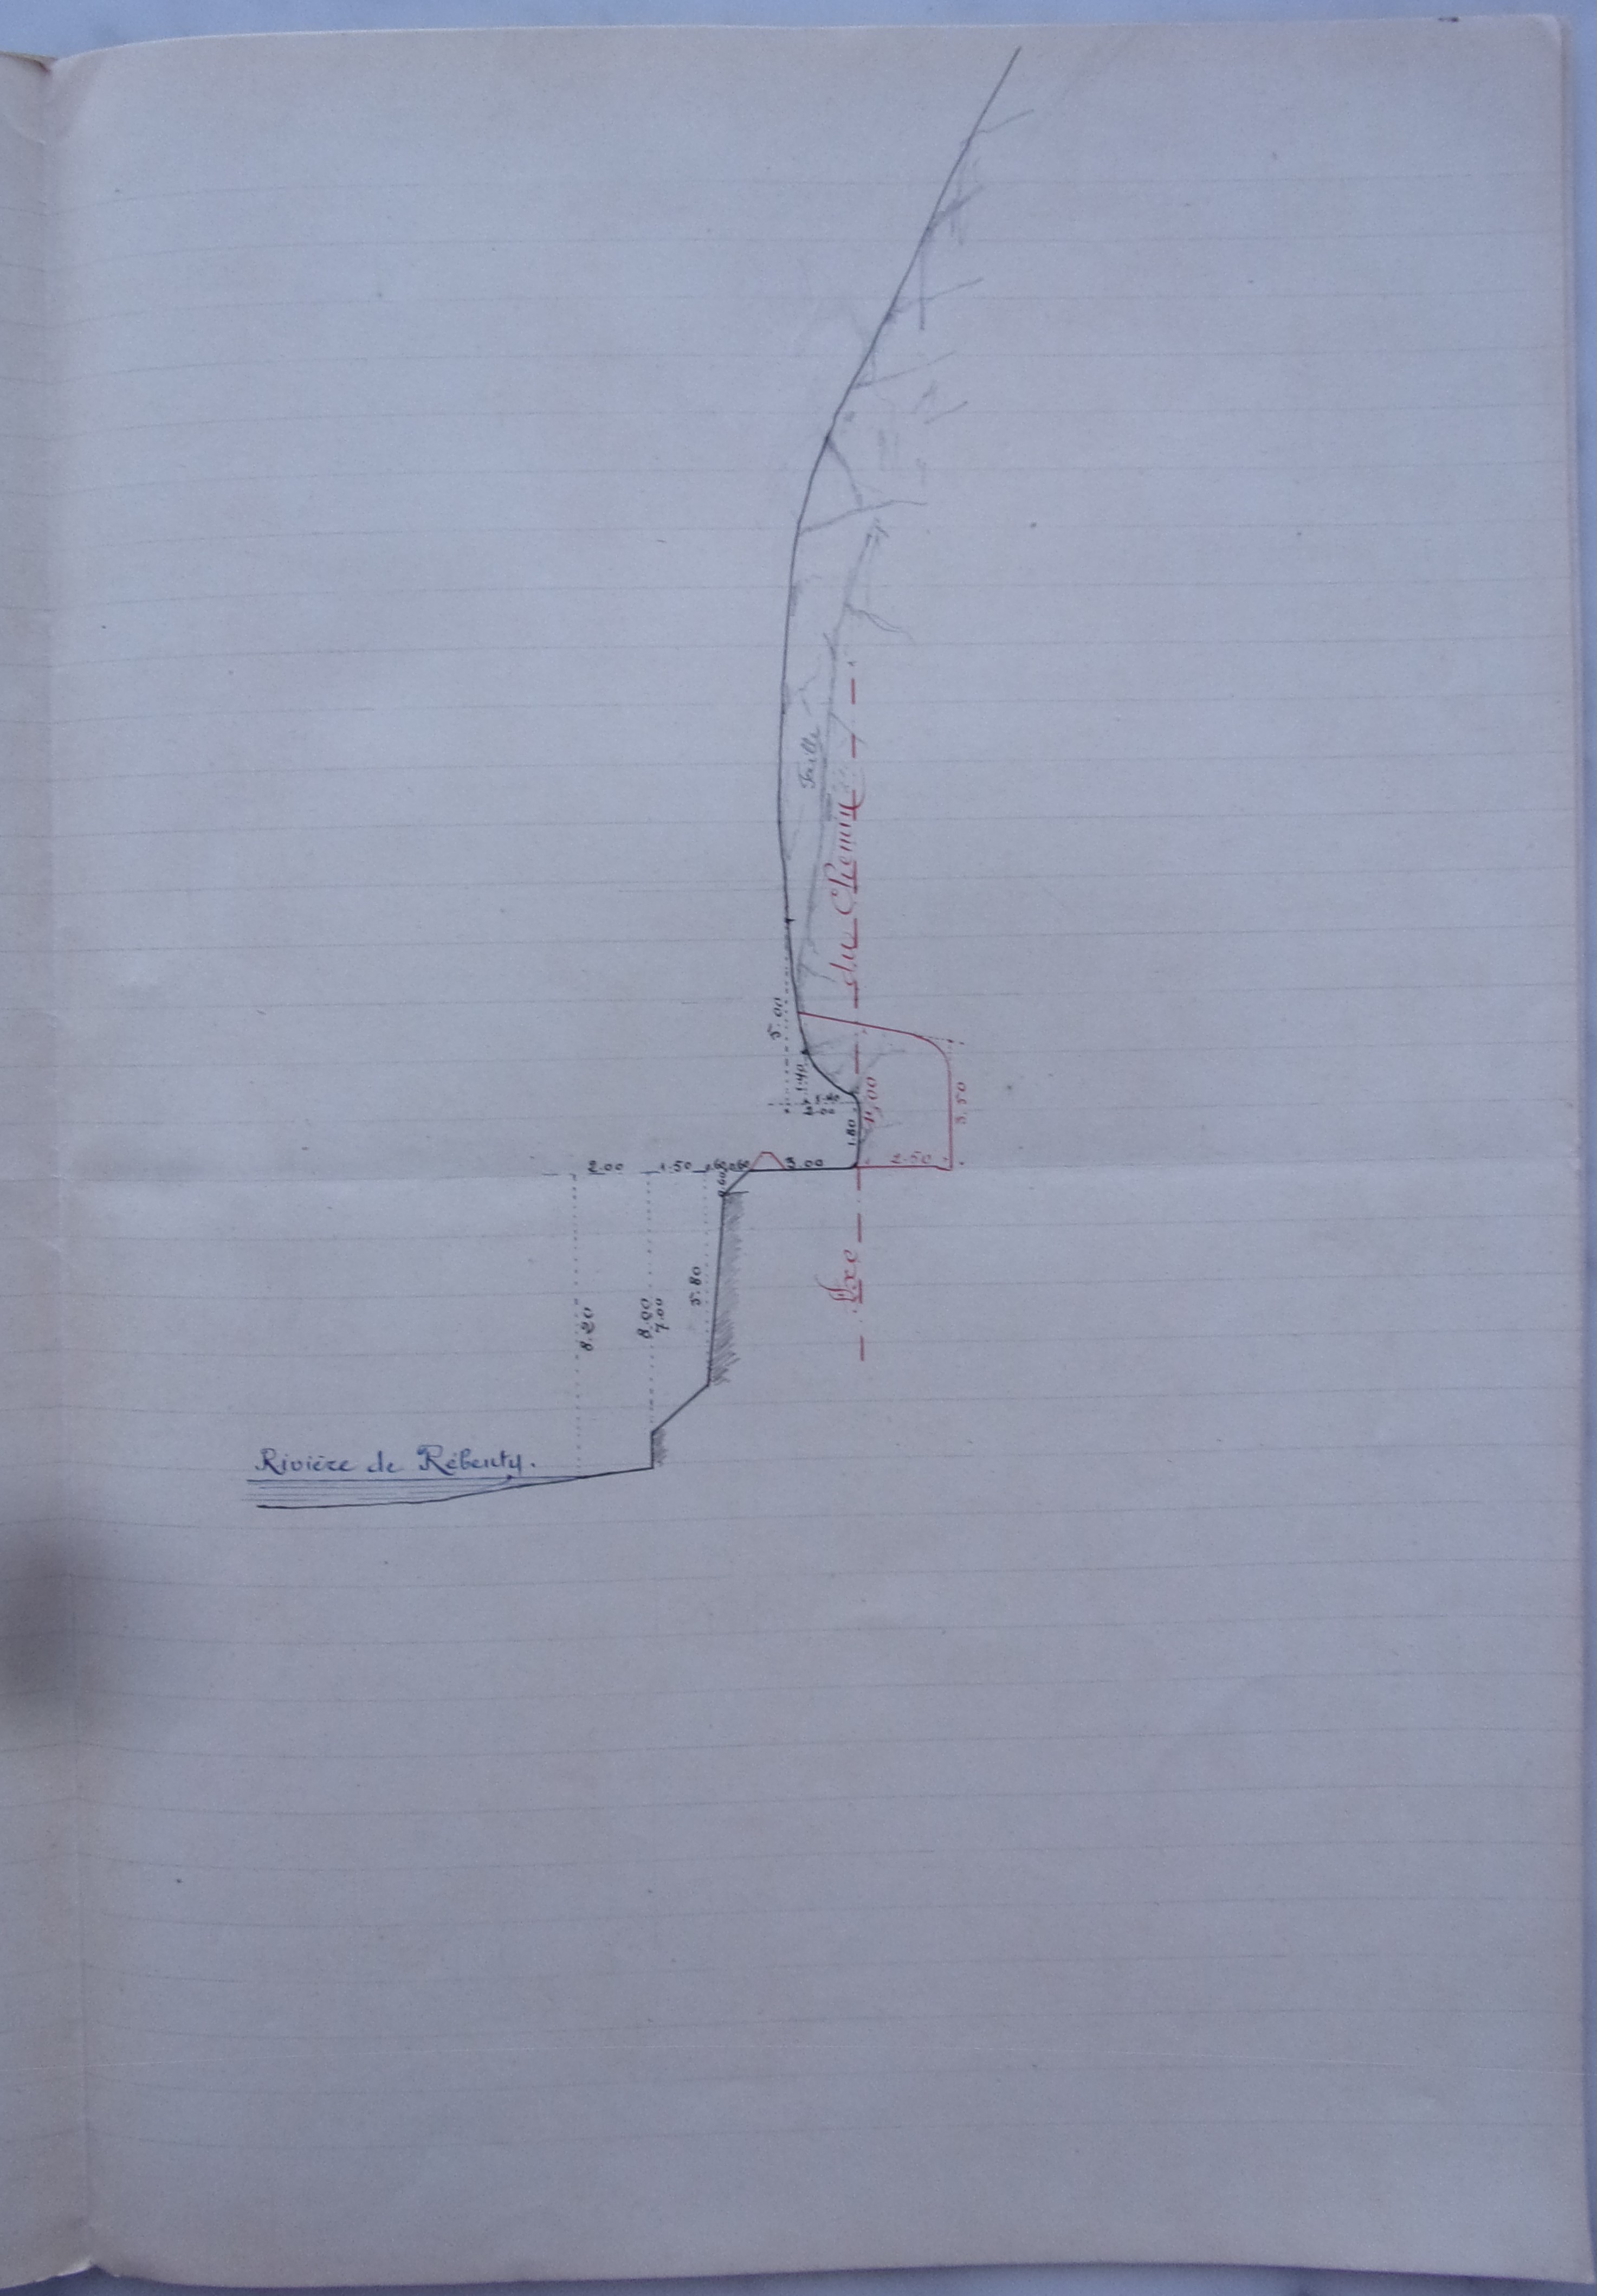 Faille
Axe du Chemin
5.00
1.40
2.00
1.80
4,00
3.50
2.00 1.50 0.60 0.60 3.00 2.50
0.60
5.80
8.20
8.00
7.00
Rivière de Rébenty.